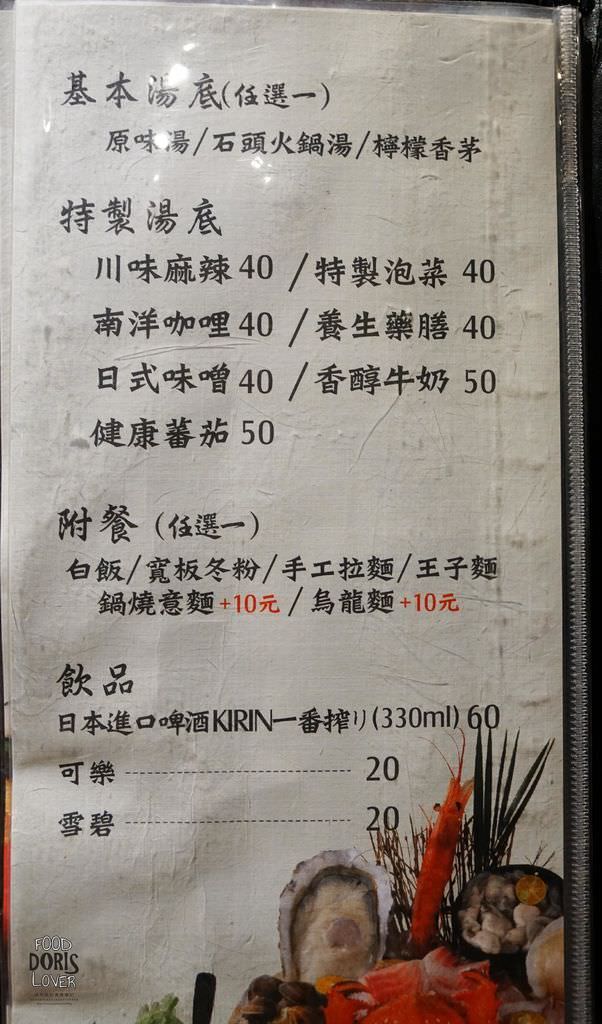 基本湯底(任選一)
原味湯/石頭火鍋湯/檸檬香茅
特製湯底
川味麻辣 40 /特製泡菜 40
南洋咖哩 40 /養生藥膳 40
日式味噌 40 /香醇牛奶 50
健康蕃茄 50
附餐(任選一)
白飯/寬板冬粉/手工拉麵/王子麵
鍋燒意麵+10元 /烏龍麵+10元
飲品
日本進口啤酒KIRIN一番搾り(330ml) 60
可樂 ---------- 20
雪碧 ---------- 20
FOOD
DORIS
LOVER